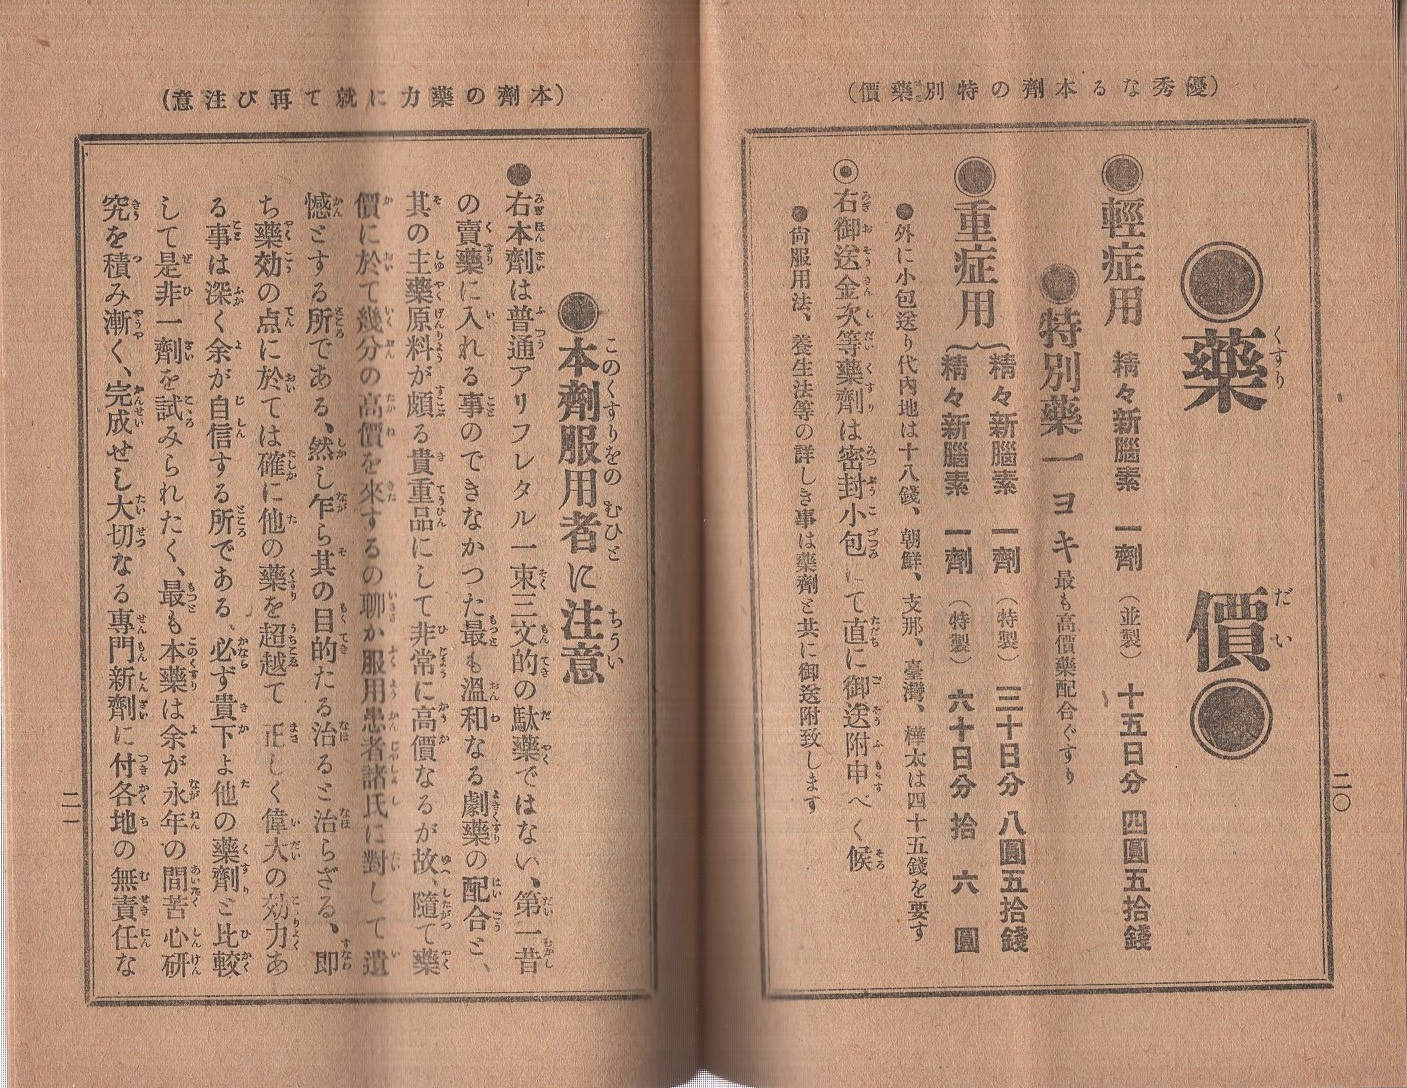 (優秀なる本劑の特別藥價)
二〇
●藥價●
くすり だい
●輕症用 精々新腦素 一劑 (並製) 十五日分 四圓五拾錢
●特別藥一ヨキ 最も高價藥配合ぐすり
●重症用
精々新腦素 一劑 (特製) 三十日分 八圓五拾錢
精々新腦素 一劑 (特製) 六十日分 拾六圓
●外に小包送り代內地は十八錢、朝鮮、支那、臺灣、樺太は四十五錢を要す
◉右御送金次等藥劑は密封小包にて直に御送附申べく候
●尙服用法、養生法等の詳しき事は藥劑と共に御送附致します
(本劑の藥力に就て再び注意)
二一
●本劑服用者に注意
このくすりをのむひと ちうい
●右本劑は普通アリフレタル一束三文的の駄藥ではない、第一昔
の賣藥に入れる事のできなかつた最も溫和なる劇藥の配合と、
其の主藥原料が頗る貴重品にして非常に高價なるが故、隨て藥
價に於て幾分の高價を來するの聊か服用患者諸氏に對して遺
憾とする所である、然し乍ら其の目的たる治ると治らざる、卽
ち藥効の点に於ては確に他の藥を超越て正しく偉大の効力あ
る事は深く余が自信する所である、必ず貴下よ他の藥劑と比較
して是非一劑を試みられたく、最も本藥は余が永年の間苦心硏
究を積み漸く、完成せし大切なる專門新劑に付各地の無責任な